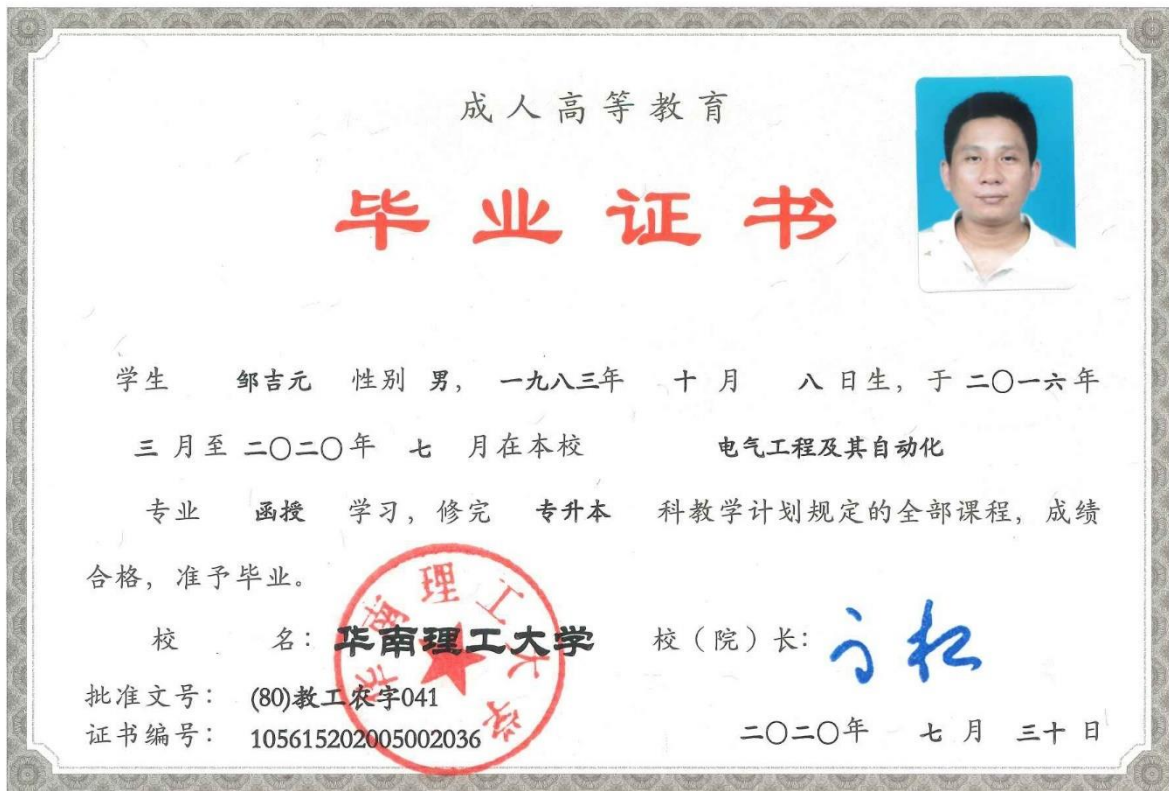 成人高等教育
毕业证书
学生 邹吉元 性别 男， 一九八三年 十 月 八 日生，于 二〇一六 年
三 月至 二〇二〇年 七 月在本校 电气工程及其自动化
专业 函授 学习，修完 专升本 科教学计划规定的全部课程，成绩
合格，准予毕业。
校 名：华南理工大学 校（院）长：
华南理工大学
批准文号： (80)教工农字041
证书编号： 105615202005002036
二〇二〇年 七 月 三十 日